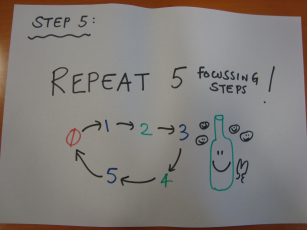 STEP 5:
REPEAT 5 FOCUSSING STEPS!
0 1 2 3
5 4